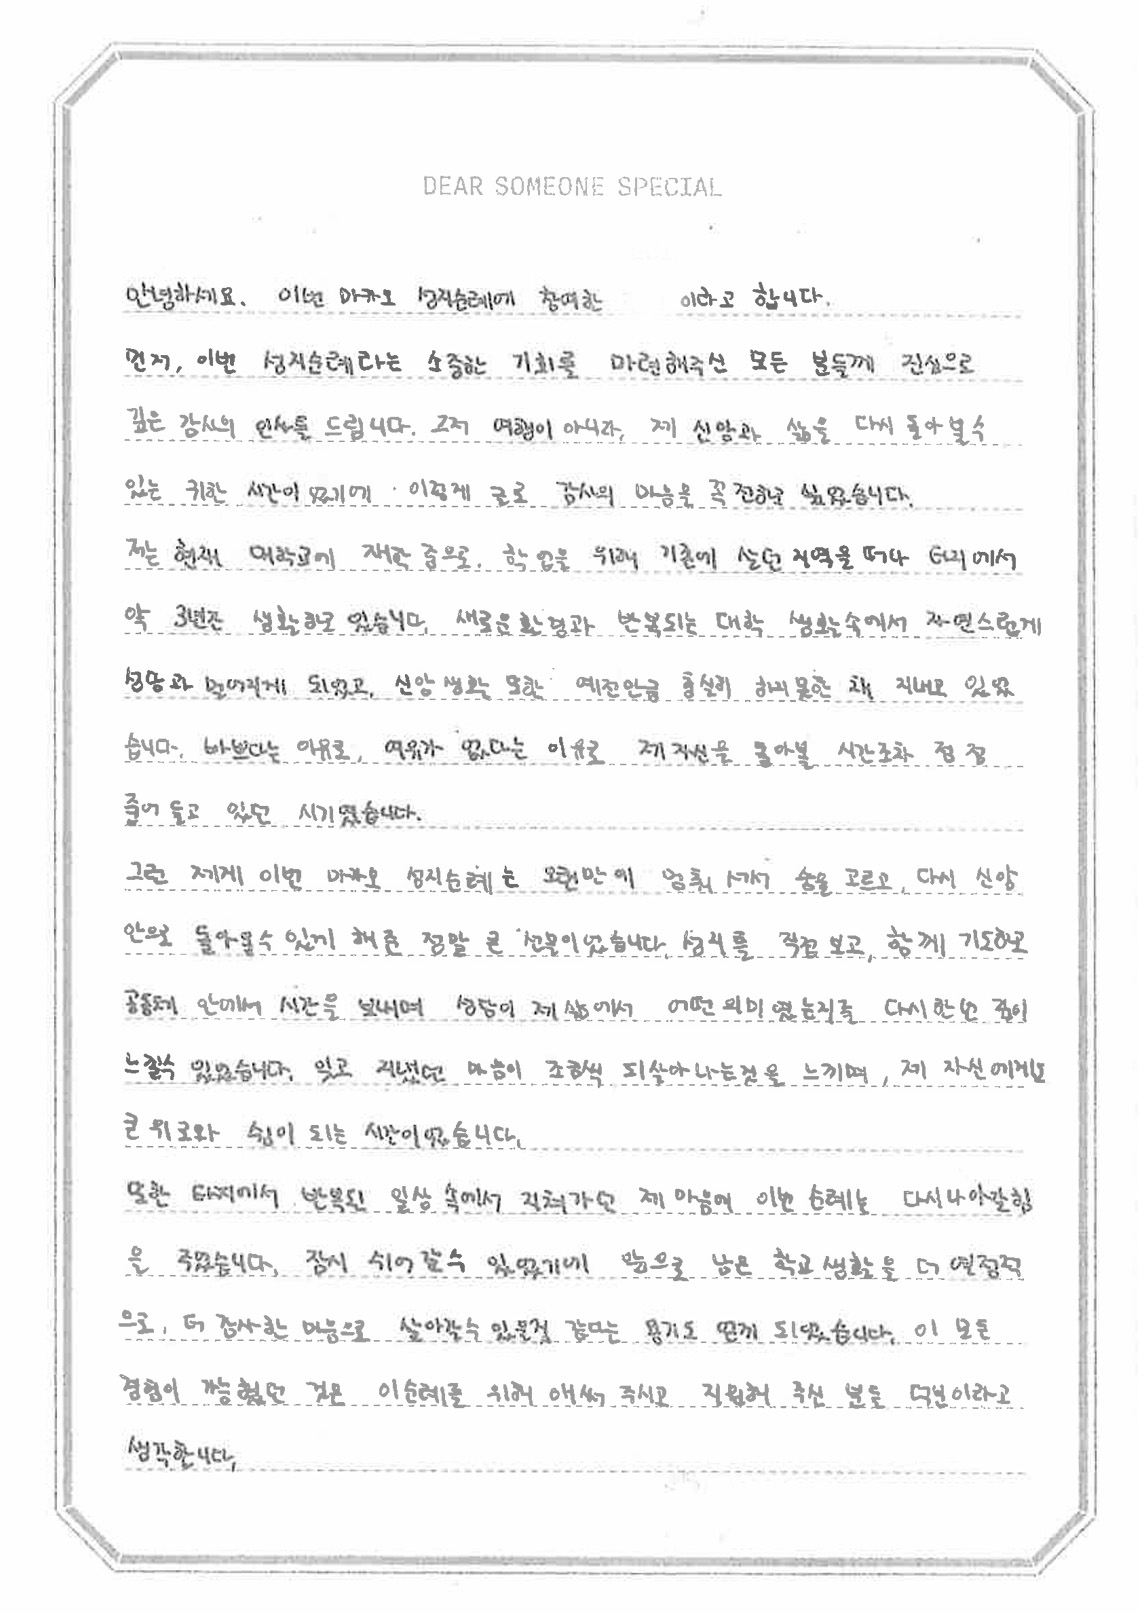 DEAR SOMEONE SPECIAL
안녕하세요. 이번 마카오 성지순례에 참여한 이라고 합니다.
먼저, 이번 성지순례라는 소중한 기회를 마련해주신 모든 분들께 진심으로
깊은 감사의 인사를 드립니다. 그저 여행이 아니라, 제 신앙과 삶을 다시 돌아볼 수
있는 귀한 시간이 었기에 이렇게 글로 감사의 마음을 꼭 전하고 싶었습니다.
저는 현재 대학교에 재학 중으로, 학업을 위해 기존에 살던 지역을 떠나 타지에서
약 3년간 생활하고 있습니다. 새로운 환경과 반복되는 대학 생활 속에서 자연스럽게
성당과 멀어지게 되었고, 신앙 생활 또한 예전만큼 충실히 하지 못한 채 지내고 있었
습니다. 바쁘다는 이유로, 여유가 없다는 이유로 제 자신을 돌아볼 시간조차 점점
줄어 들고 있던 시기였습니다.
그런 제게 이번 마카오 성지순례는 오랜만에 멈춰 서서 숨을 고르고, 다시 신앙
안으로 돌아올 수 있게 해준 정말 큰 선물이었습니다. 성지를 직접 보고, 함께 기도하고
공동체 안에서 시간을 보내며 성당이 제 삶에서 어떤 의미였는지를 다시 한번 깊이
느낄수 있었습니다. 잊고 지냈던 마음이 조금씩 되살아나는것을 느끼며, 제 자신에게도
큰 위로와 쉼이 되는 시간이었습니다.
또한 타지에서 반복된 일상 속에서 지쳐가던 제 마음에 이번 순례는 다시 나아갈 힘
을 주었습니다. 잠시 쉬어 갈 수 있었기에 앞으로 남은 학교 생활을 더 열정적
으로, 더 감사한 마음으로 살아갈수 있을것 같다는 용기도 얻게 되었습니다. 이 모든
경험이 가능했던 것은 이 순례를 위해 애써 주시고 지원해 주신 분들 덕분이라고
생각합니다.